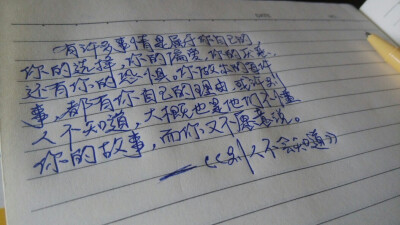 有许多事情是属于你自己的，
你的选择，你的偏爱，你的
还有你的恐惧。你做的每件
事，都有你自己的理由，或许别
人不知道，大概也是他们不懂
你的故事，而你又不愿意说。
——《别人不会知道》